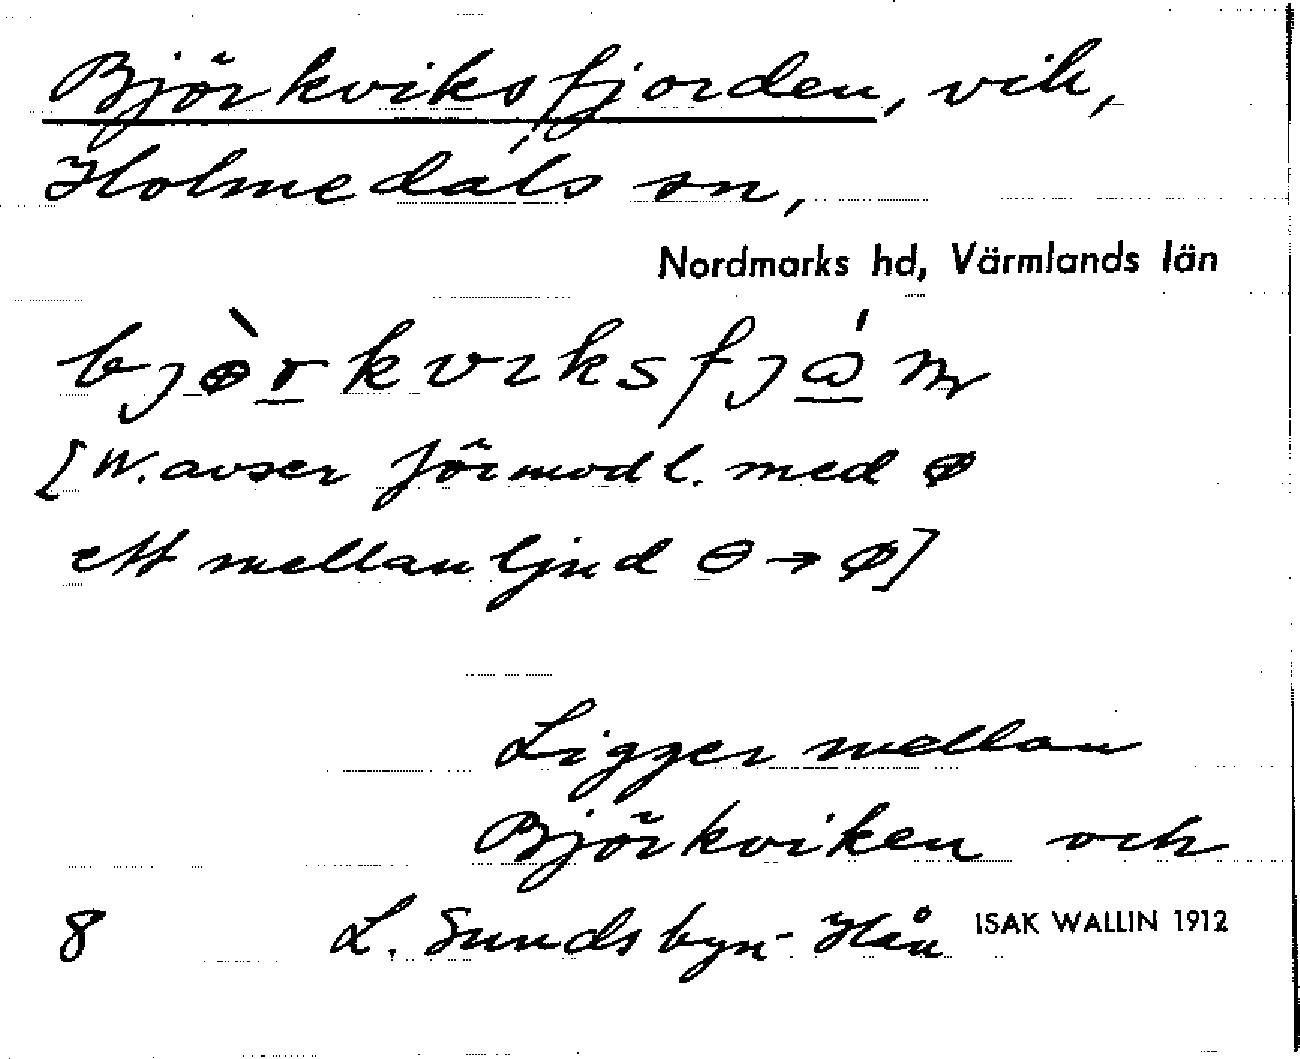 Björkviksfjorden, vik,
Holmedals sn,
Nordmarks hd, Värmlands län
[W. avser förmodl. med ꝋ
ett mellanljud ɵ → ø]
Ligger mellan
Björkviken och
8 L. Sundsbyn - Hån ISAK WALLIN 1912